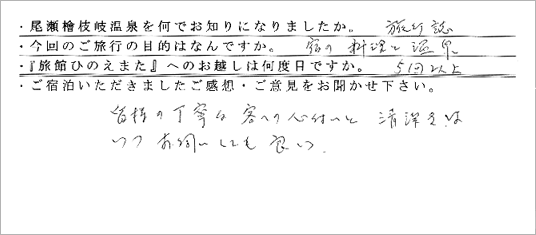 ・尾瀬檜枝岐温泉を何でお知りになりましたか。 旅行誌
・今回のご旅行の目的はなんですか。 宿の料理と温泉
・『旅館ひのえまた』へのお越しは何度目ですか。 5回以上
・ご宿泊いただきましたご感想・ご意見をお聞かせ下さい。
皆様の丁寧な客への心付いと清潔さは
いつお伺いしても良い。